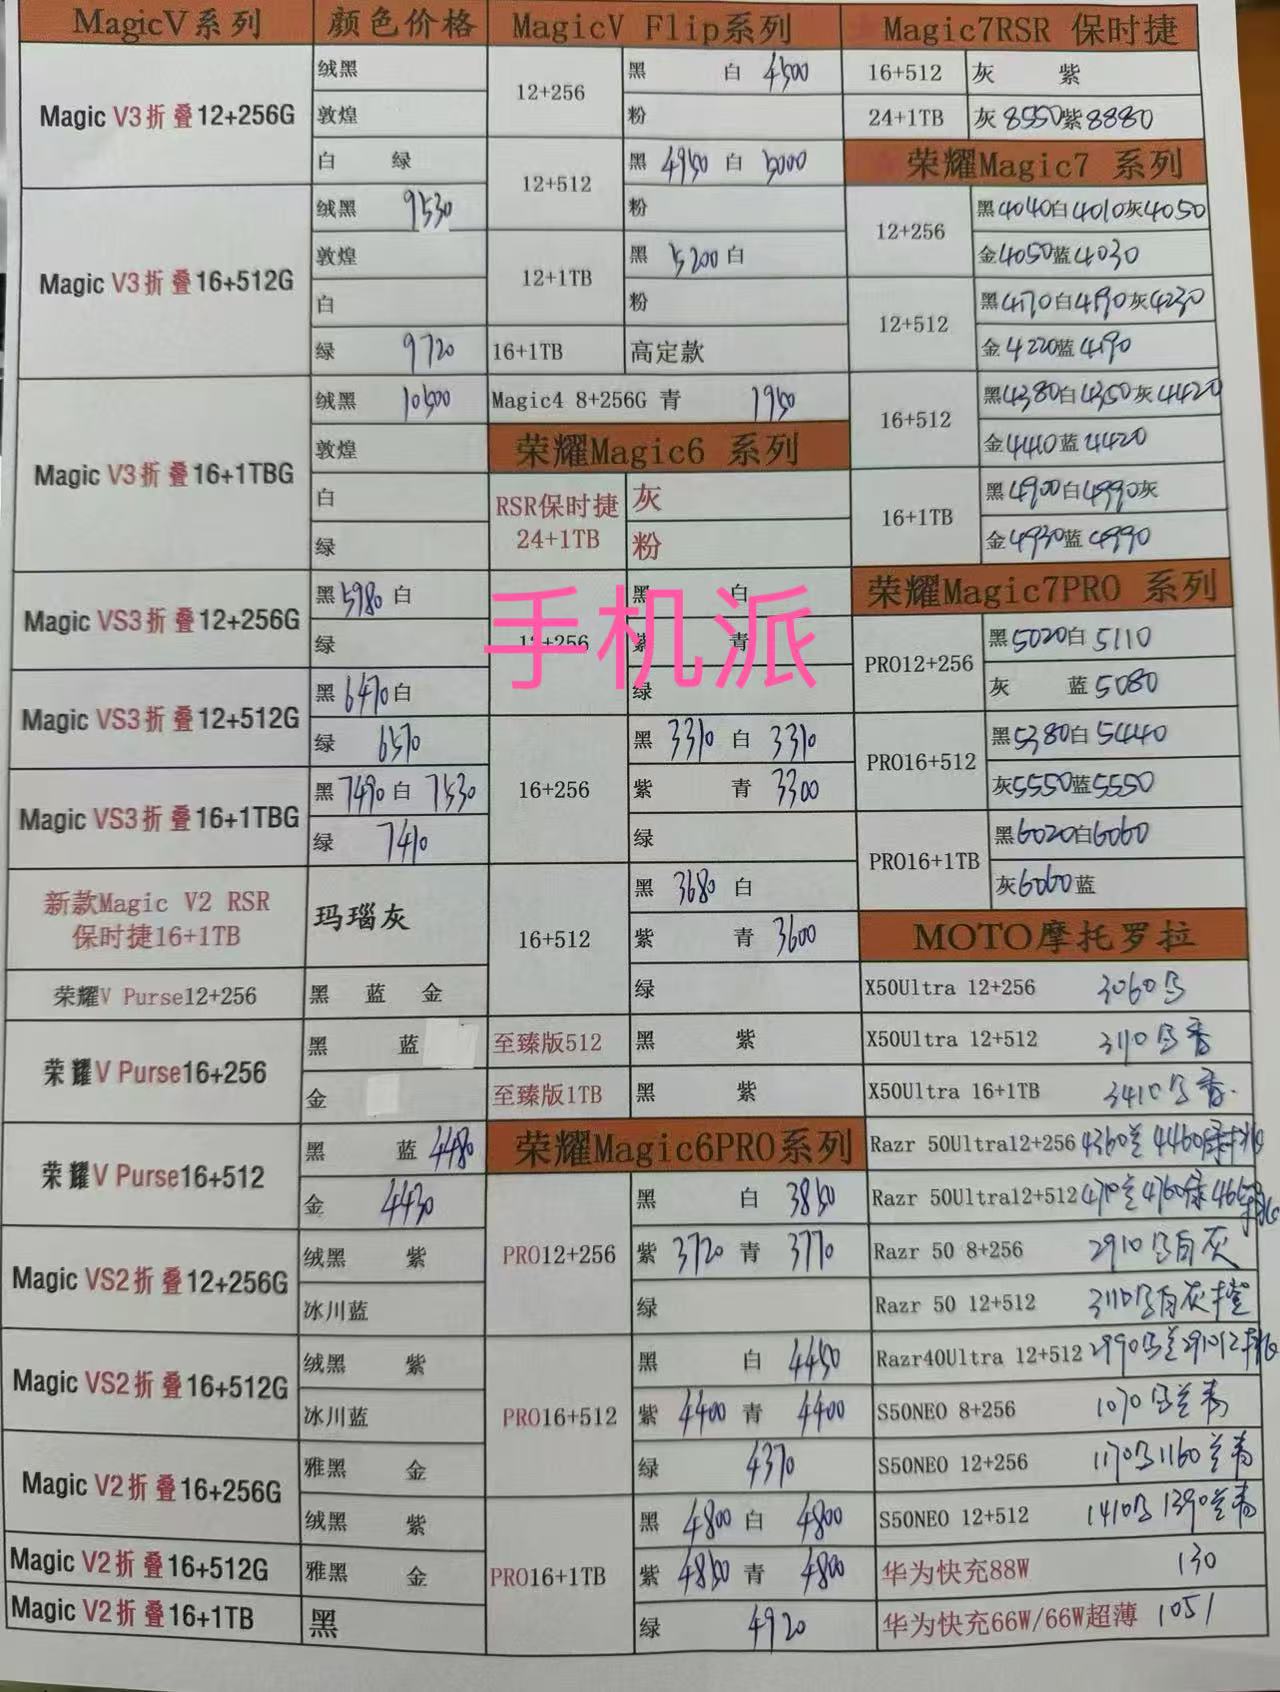 MagicV系列 颜色价格
Magic V3折叠12+256G
绒黑
敦煌
白 绿
Magic V3折叠16+512G
绒黑 9530
敦煌
白
绿 9720
Magic V3折叠16+1TBG
绒黑 10500
敦煌
白
绿
Magic VS3折叠12+256G
黑5980 白
绿
Magic VS3折叠12+512G
黑6470白
绿 6570
Magic VS3折叠16+1TBG
黑7490白 7530
绿 7410
新款Magic V2 RSR
保时捷16+1TB
玛瑙灰
荣耀V Purse12+256
黑 蓝 金
荣耀V Purse16+256
黑 蓝
金
荣耀V Purse16+512
黑 蓝4480
金 4430
Magic VS2折叠12+256G
绒黑 紫
冰川蓝
Magic VS2折叠16+512G
绒黑 紫
冰川蓝
Magic V2折叠16+256G
雅黑 金
绒黑 紫
Magic V2折叠16+512G
雅黑 金
Magic V2折叠16+1TB
黑
MagicV Flip系列
12+256
黑 白 4500
粉
12+512
黑 4950 白 5000
粉
12+1TB
黑 5200 白
粉
16+1TB 高定款
Magic4 8+256G 青 1950
荣耀Magic6 系列
RSR保时捷
24+1TB
灰
粉
12+256
黑 白
紫 青
绿
手机派
16+256
黑 3310 白 3310
紫 青 3300
绿
16+512
黑 3680 白
紫 青 3600
绿
至臻版512 黑 紫
至臻版1TB 黑 紫
荣耀Magic6PRO系列
PRO12+256
黑 白 3850
紫 3720 青 3770
绿
PRO16+512
黑 白 4450
紫 4400 青 4400
绿 4370
PRO16+1TB
黑 4800 白 4800
紫 4850 青 4800
绿 4920
Magic7RSR 保时捷
16+512 灰 紫
24+1TB 灰 8550紫8880
荣耀Magic7 系列
12+256
黑4040白4010灰4050
金4050蓝4030
12+512
黑4170白4190灰4230
金4220蓝4190
16+512
黑4380白4350灰4420
金4410蓝4420
16+1TB
黑4900白4990灰
金4930蓝4990
荣耀Magic7PRO 系列
PRO12+256
黑5020白5110
灰 蓝5080
PRO16+512
黑5380白5440
灰5550蓝5550
PRO16+1TB
黑6020白6060
灰6060蓝
MOTO摩托罗拉
X50Ultra 12+256 3060
X50Ultra 12+512 3110
X50Ultra 16+1TB 3410
Razr 50Ultra12+256 4360兰 4460
Razr 50Ultra12+512 4710兰 4760
Razr 50 8+256 2910
Razr 50 12+512 3110
Razr40Ultra 12+512 2990
S50NEO 8+256 1070
S50NEO 12+256 1170 1160
S50NEO 12+512 1410 1390
华为快充88W 130
华为快充66W/66W超薄 105/